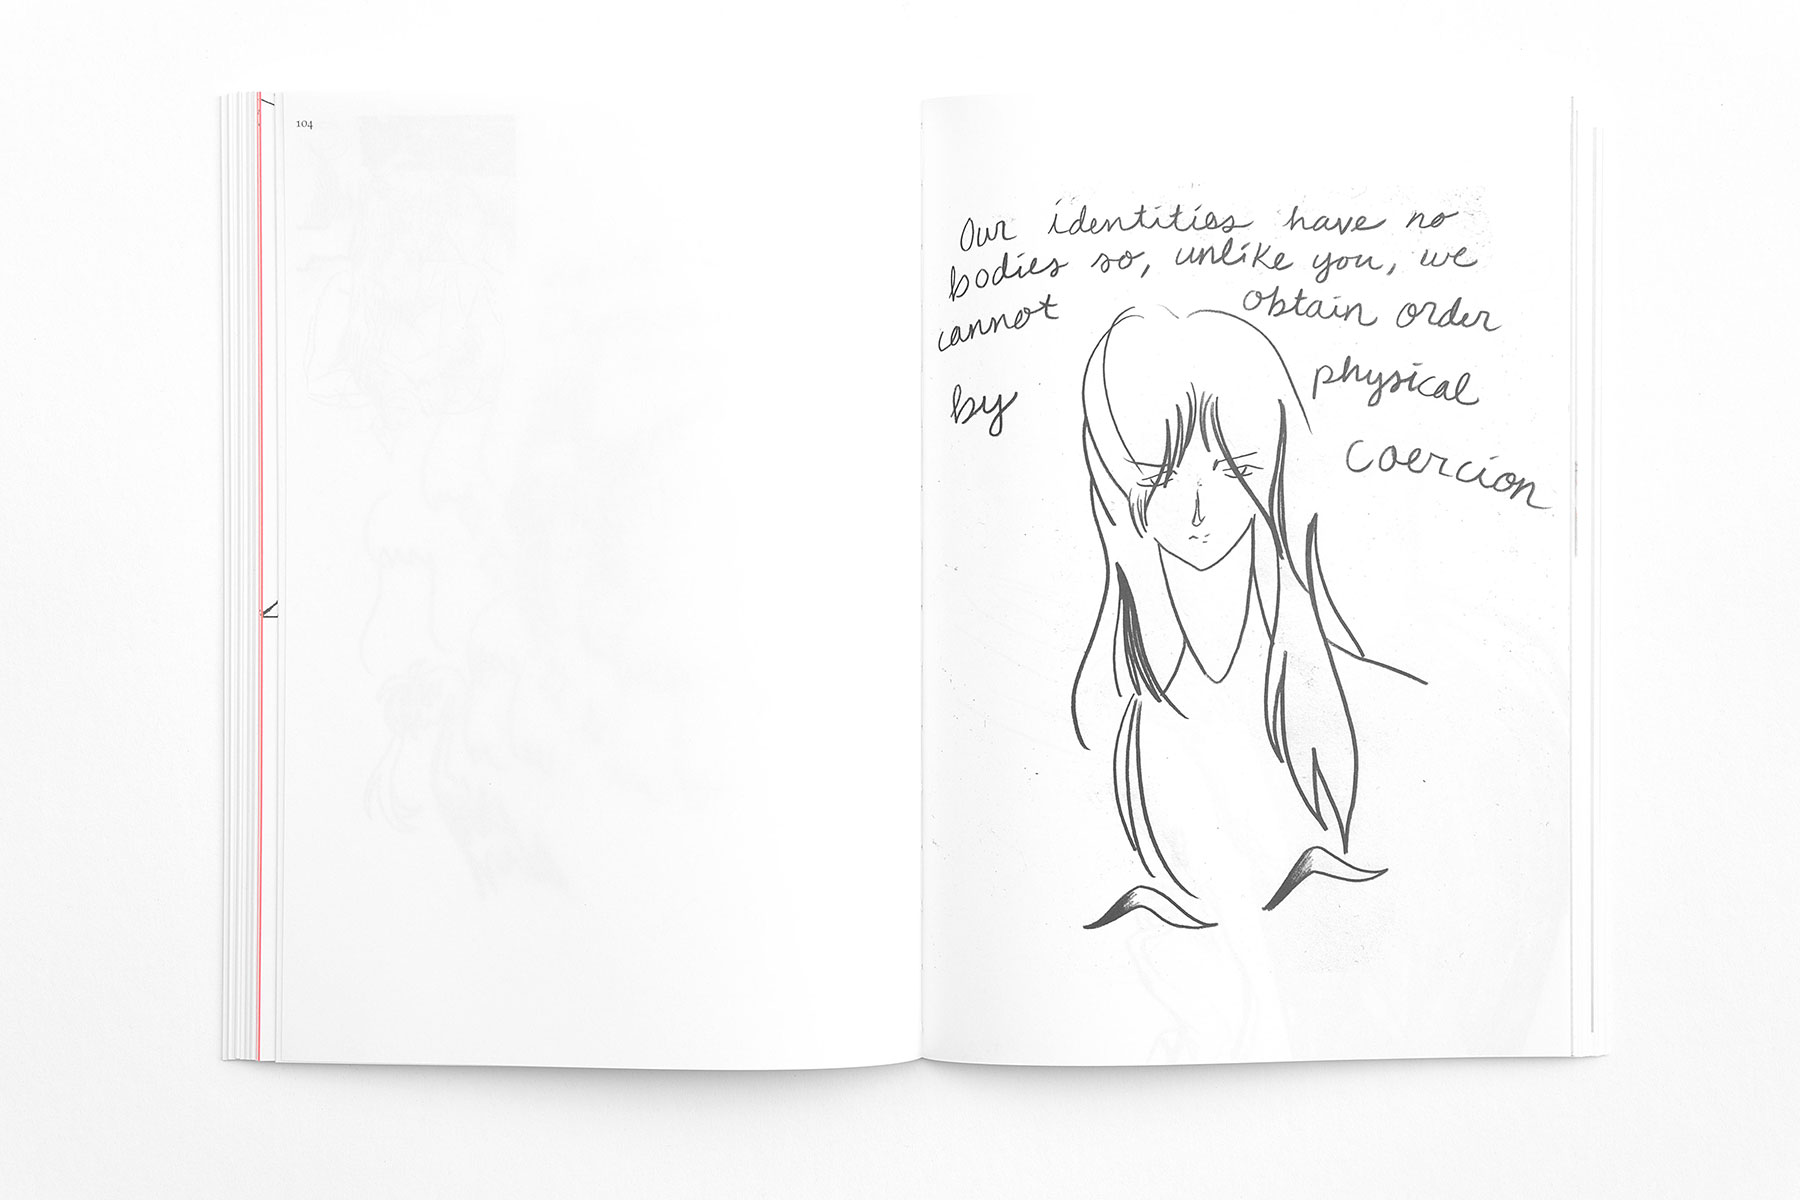 104
Our identities have no
bodies so, unlike you, we
cannot obtain order
by physical
coercion